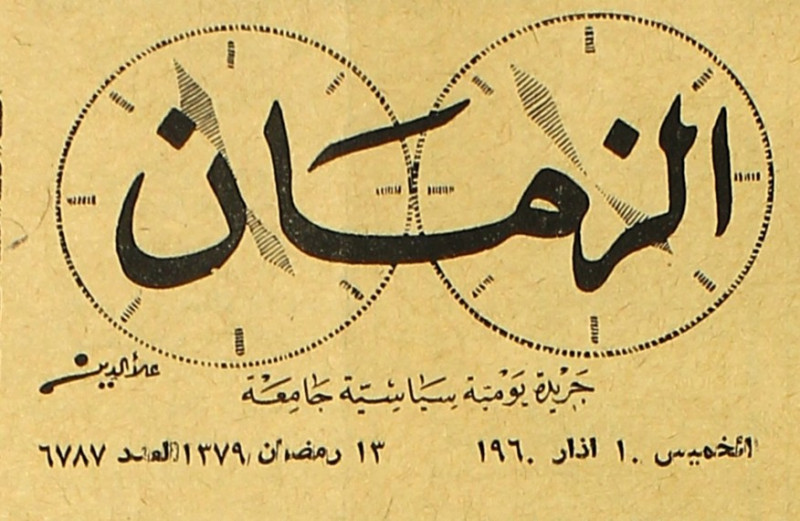 الزمان
علاءالدين
جريدة يومية سياسية جامعة
الخميس ١٠ اذار ١٩٦٠ ١٣ رمضان ١٣٧٩ العدد ٦٧٨٧